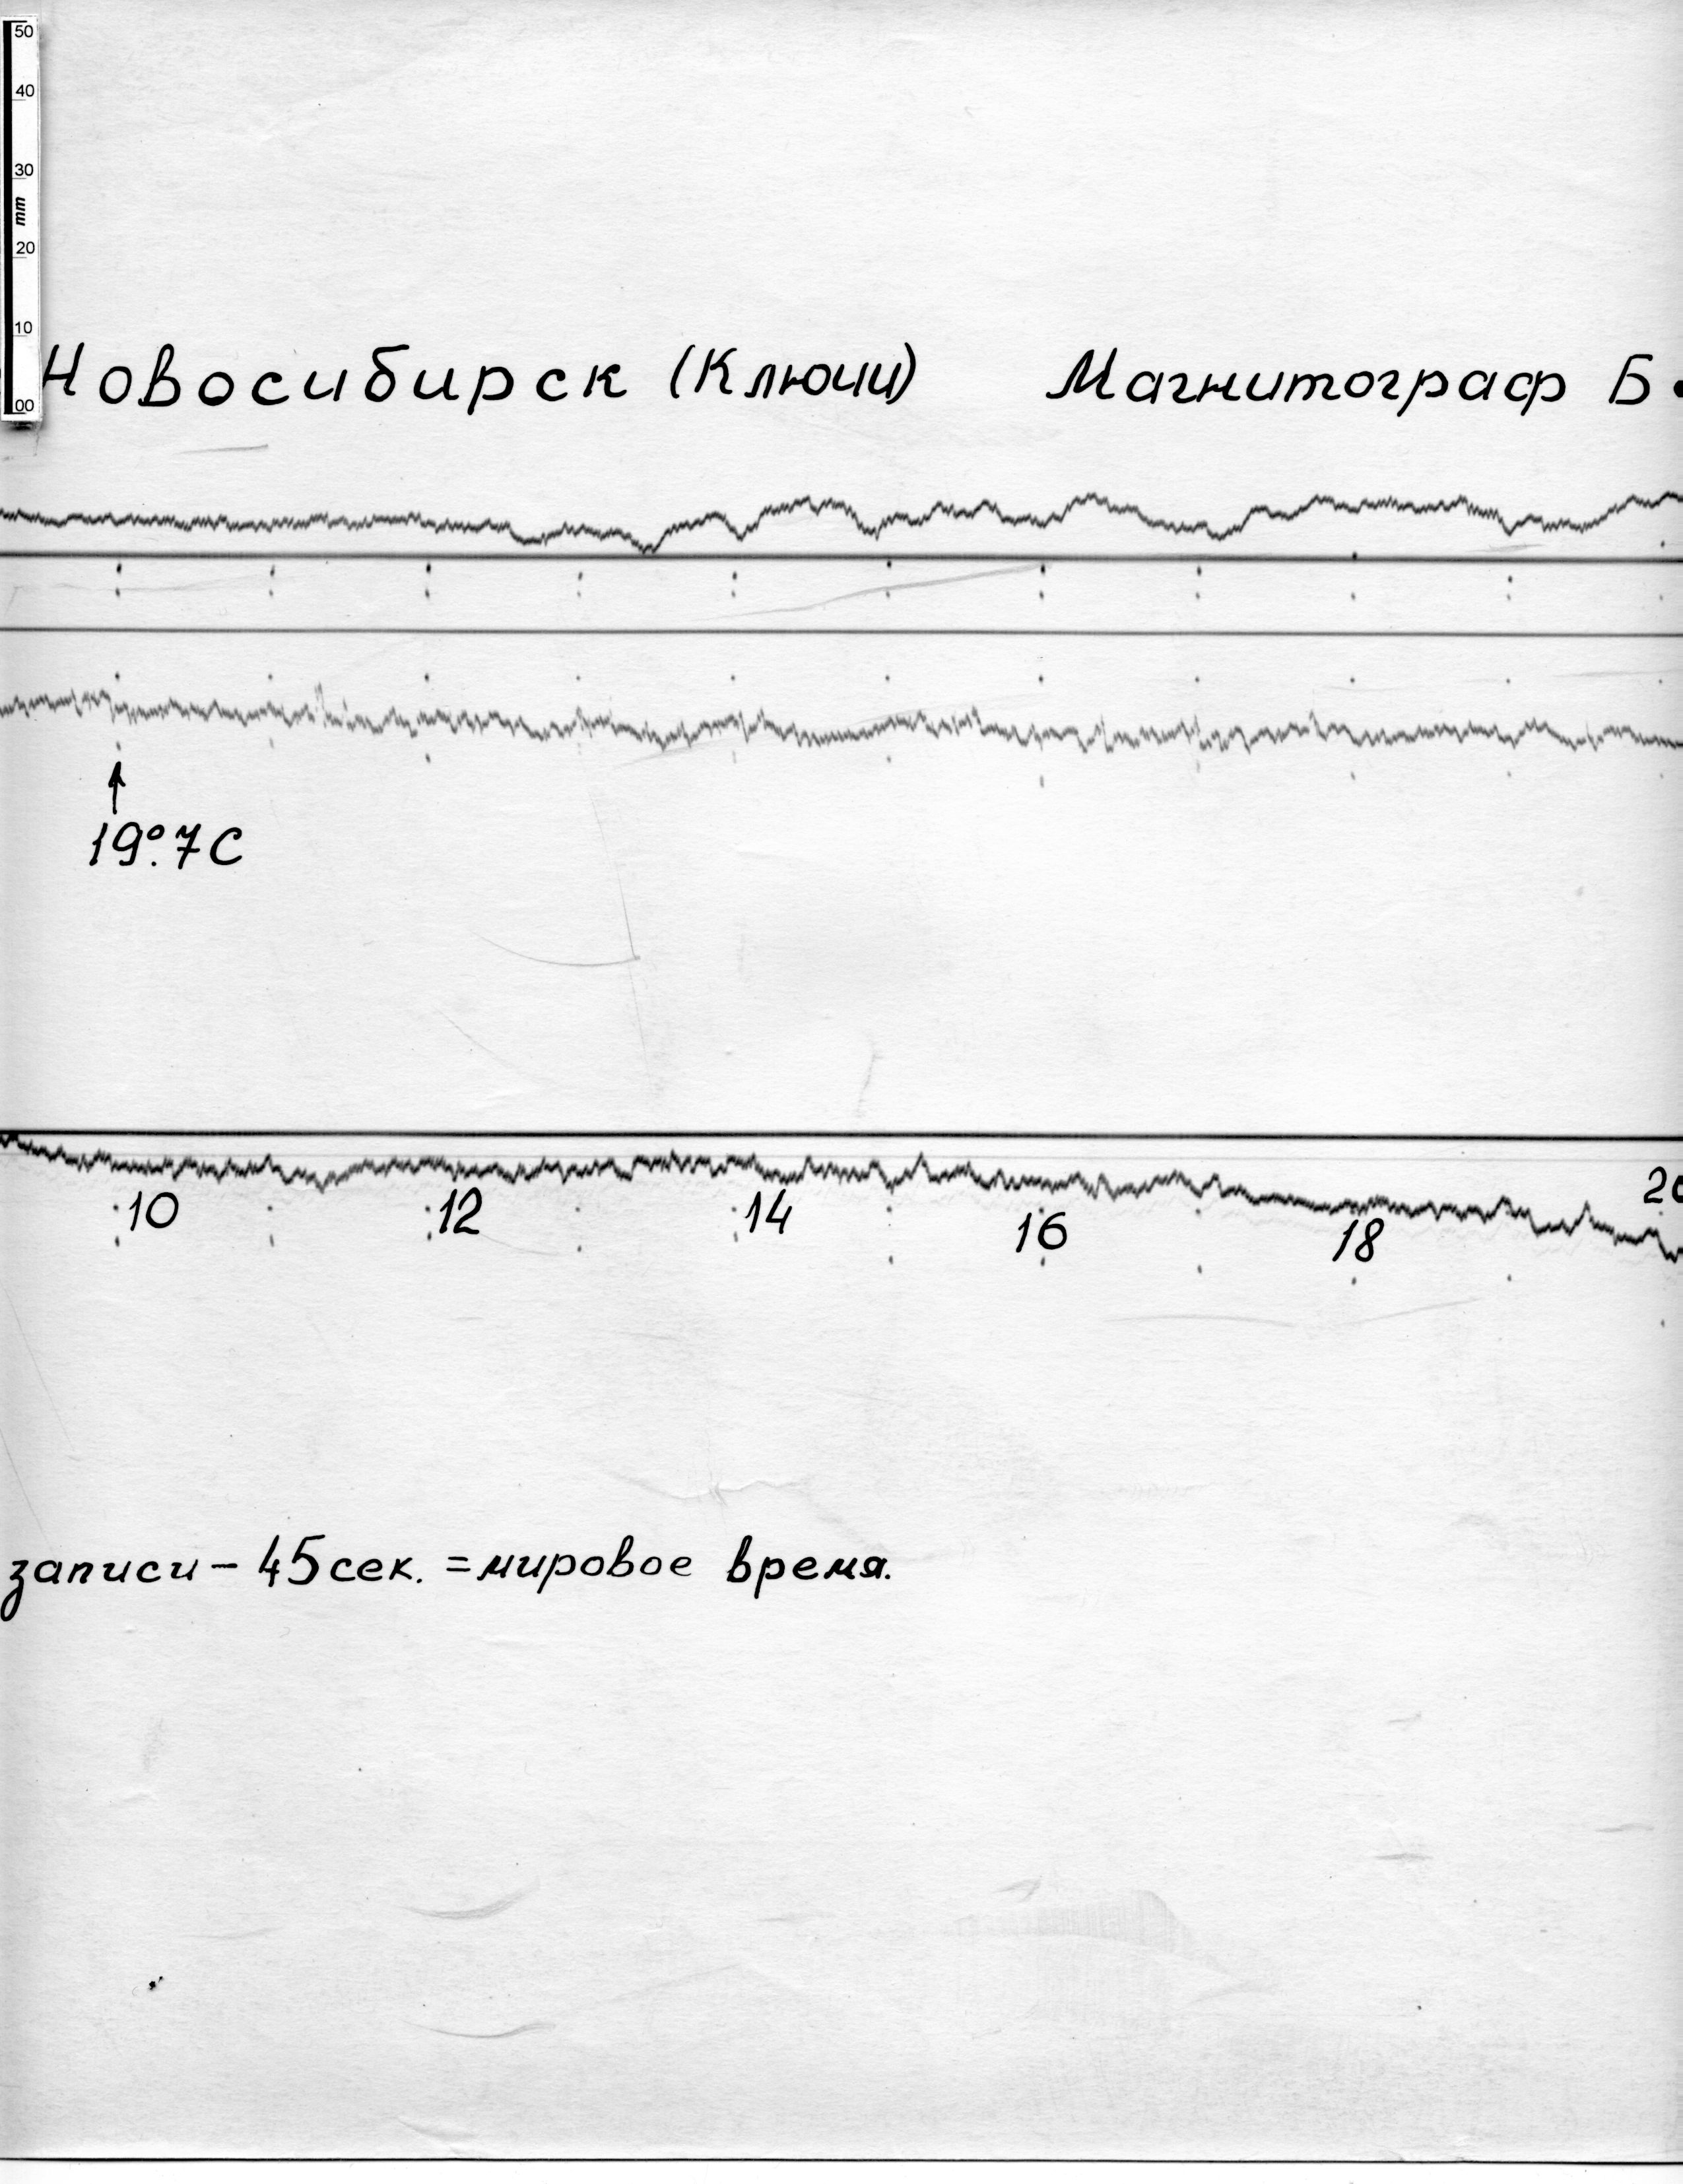 50
40
30
mm
20
10
00
Новосибирск (Ключи) Магнитограф Б
19°.7 С
10 12 14 16 18 20
записи - 45 сек. = мировое время.